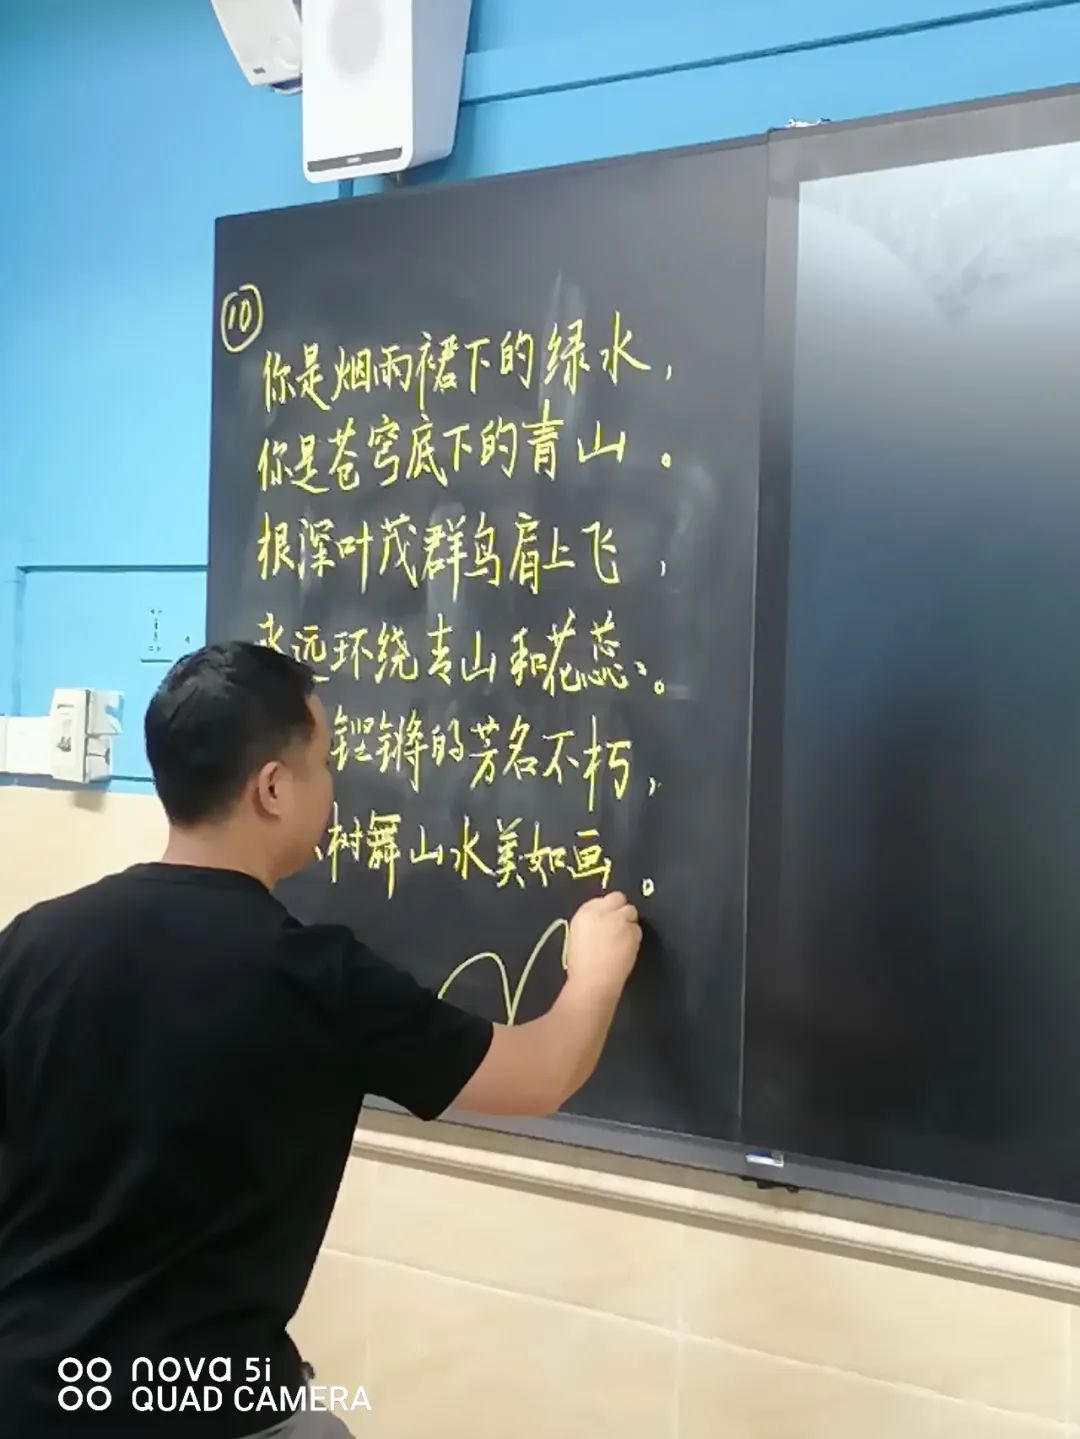 10
你是烟雨裙下的绿水，
你是苍穹底下的青山。
根深叶茂群鸟肩上飞，
永远环绕青山和花蕊。
铿锵的芳名不朽，
树舞山水美如画。
nova 5i
QUAD CAMERA